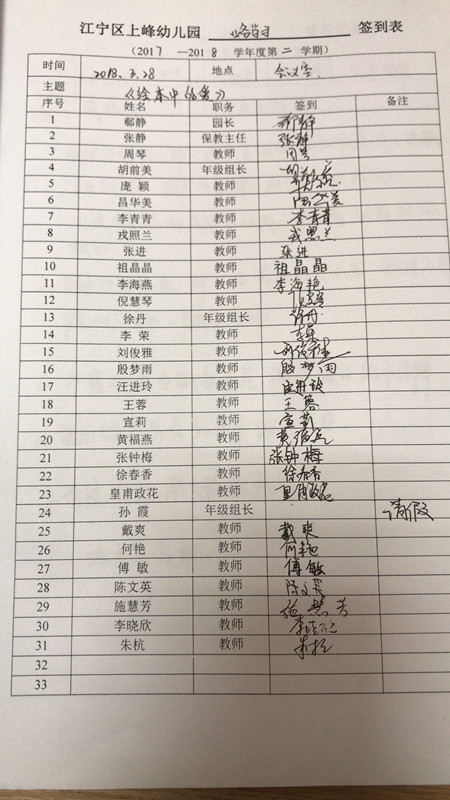 江宁区上峰幼儿园 签到表
(2017 —2018 学年度第二 学期)
时间 2018.3.28 地点 会议室
主题 《绘本中的爱》
序号 姓名 职务 签到 备注
1 郗静 园长
2 张静 保教主任 张静
3 周琴 教师 周琴
4 胡前美 年级组长
5 庞 颖 教师
6 昌华美 教师
7 李青青 教师 李青青
8 戎照兰 教师 戎照兰
9 张进 教师 张进
10 祖晶晶 教师 祖晶晶
11 李海燕 教师 李海艳
12 倪慧琴 教师
13 徐丹 年级组长 徐丹
14 李 荣 教师 李荣
15 刘俊雅 教师
16 殷梦雨 教师 殷梦雨
17 汪进玲 教师
18 王蓉 教师 王蓉
19 宣莉 教师 宣莉
20 黄福燕 教师
21 张钟梅 教师 张钟梅
22 徐春香 教师 徐春香
23 皇甫政花 教师
24 孙 霞 年级组长 请假
25 戴爽 教师 戴爽
26 何艳 教师 何艳
27 傅 敏 教师 傅敏
28 陈文英 教师 陈文英
29 施慧芳 教师 施慧芳
30 李晓欣 教师 李晓欣
31 朱杭 教师 朱杭
32
33